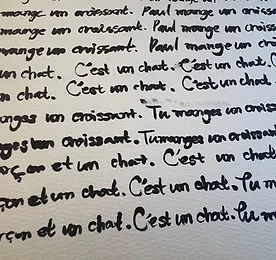 mange un croissant. Paul mange un croiss
mange un croissant. Paul mange un croiss
mange un croissant. Paul mange un cro
un chat. C'est un chat. C'est un chat. C
n chat. C'est un chat. C'est un chat.
anges un croissant. Tu manges un croissan
ges un croissant. Tu manges un croissan
rçon et un chat. C'est un chat
çon et un chat. C'est un chat. Tu m
rçon et un chat. C'est un chat. Tu m